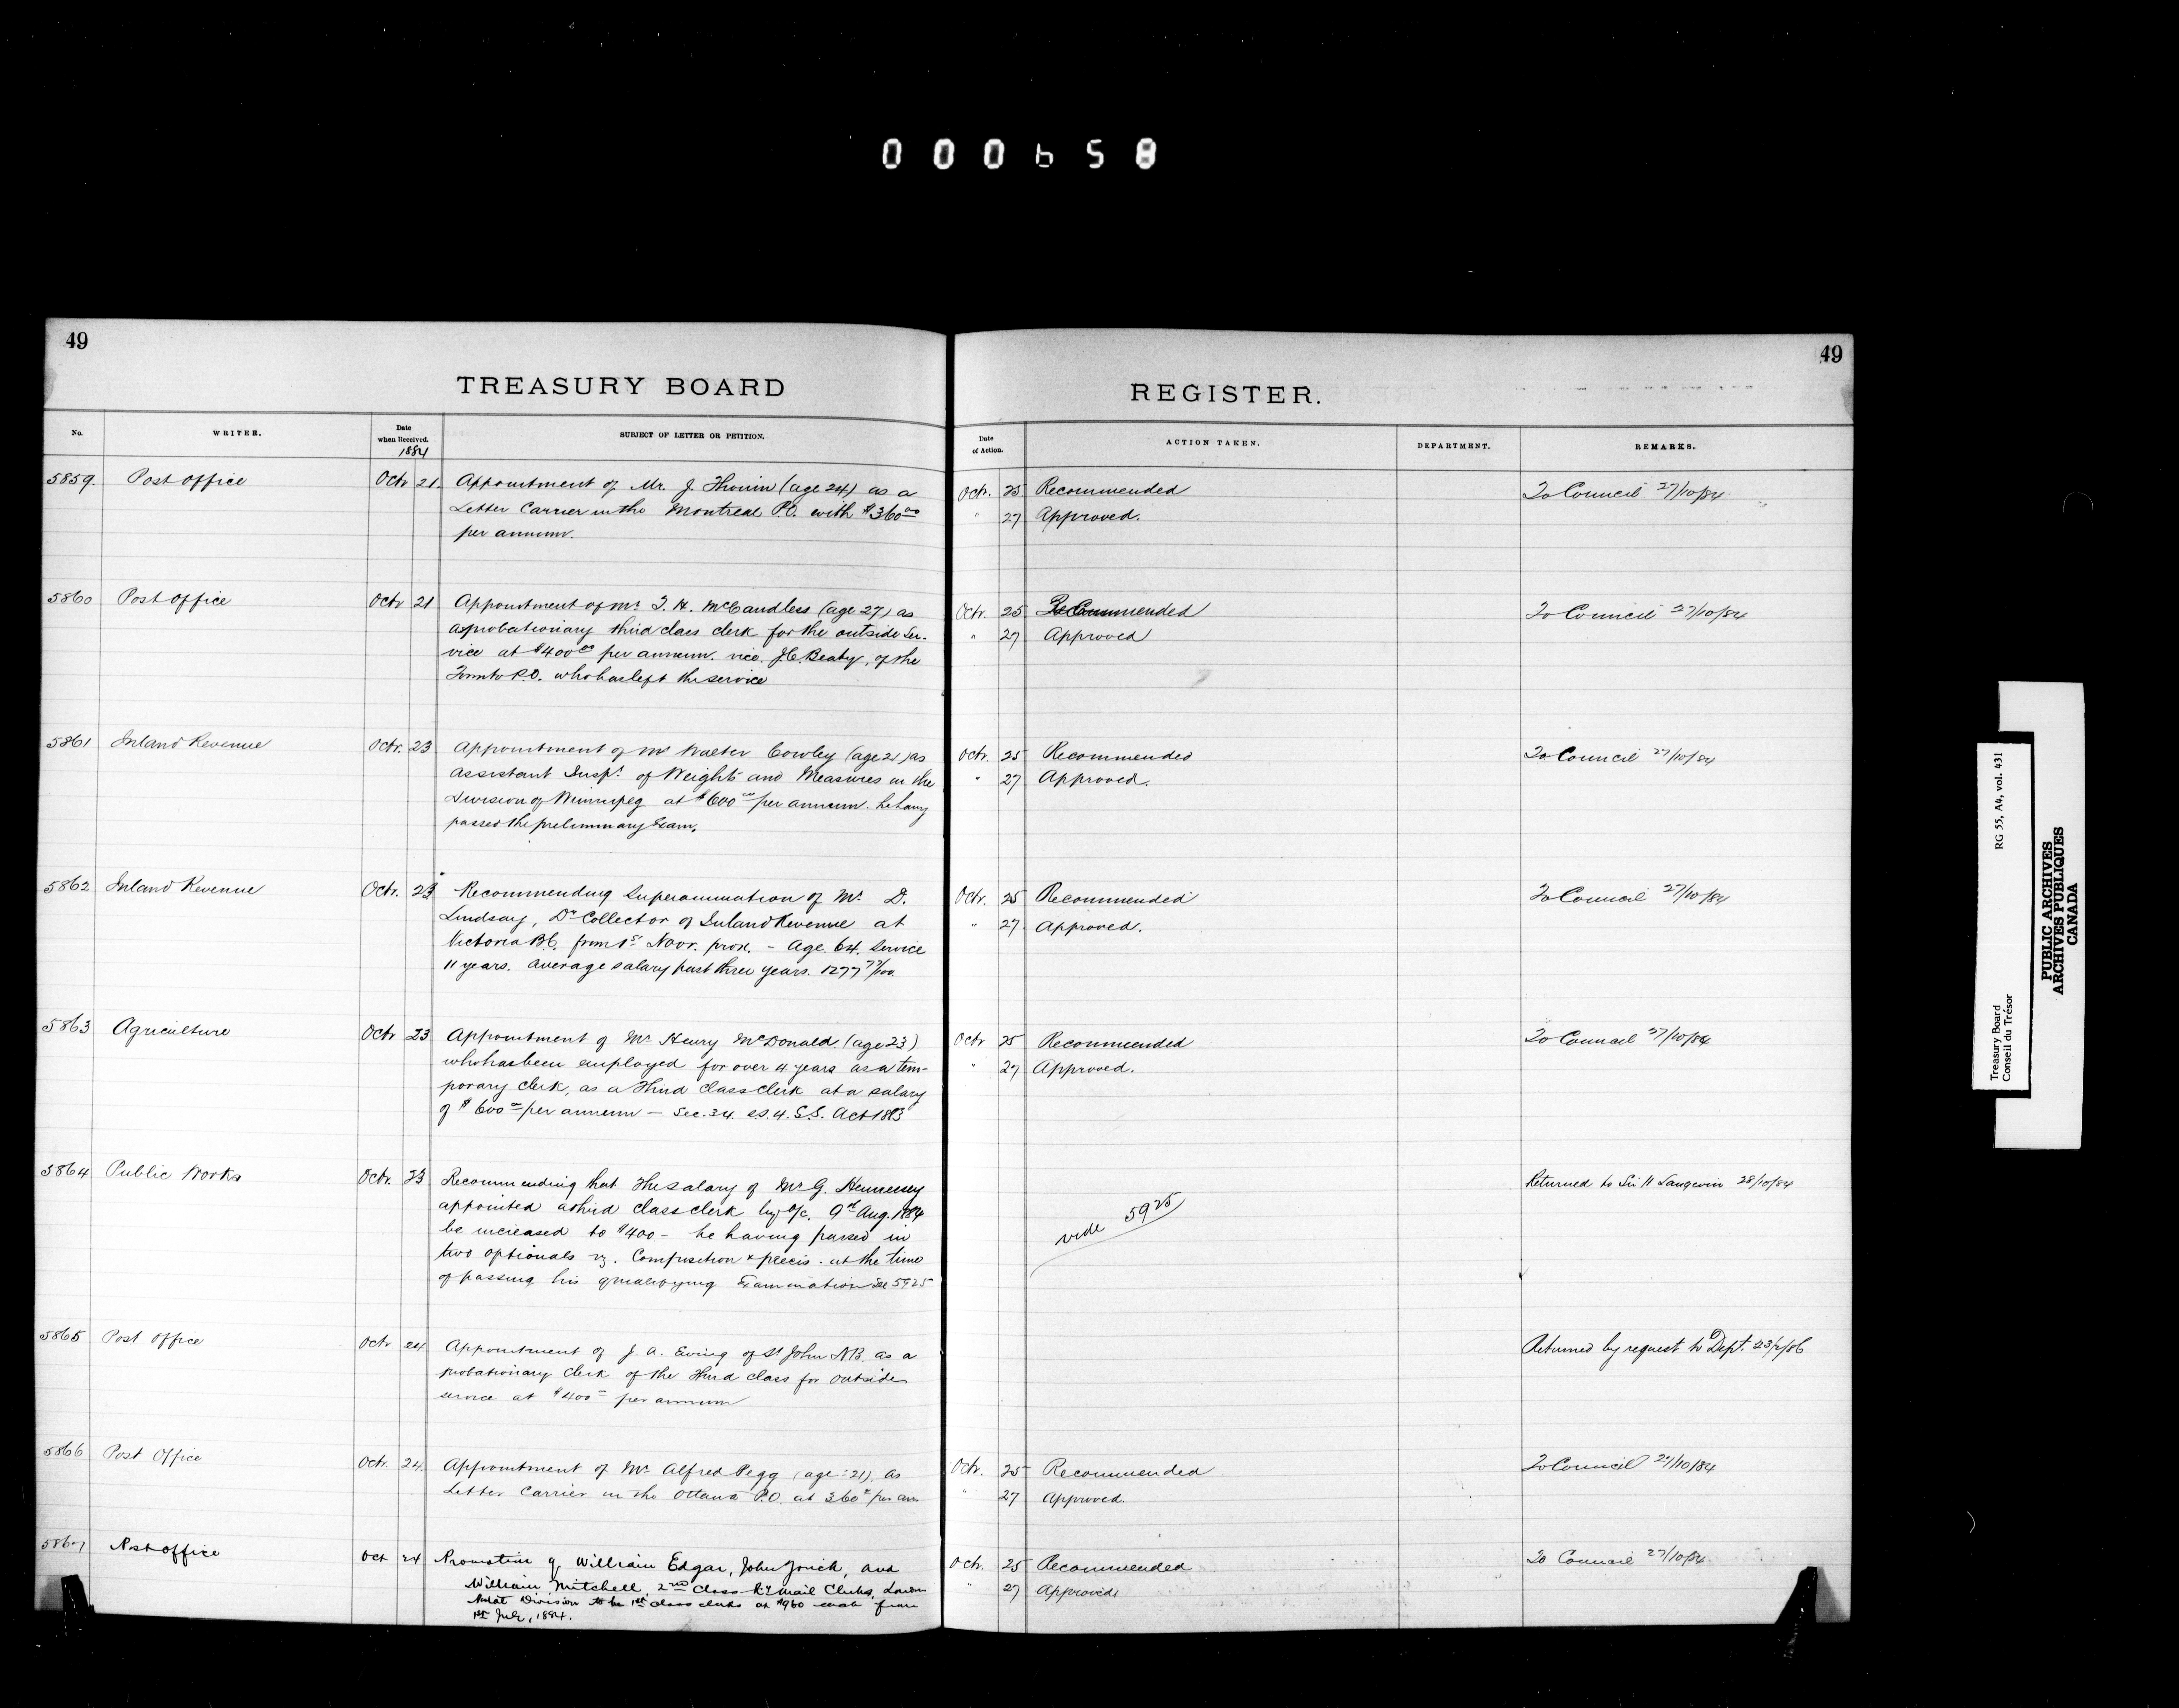 000658
49
TREASURY BOARD
No.
WRITER.
Date when Received.
1884
SUBJECT OF LETTER OR PETITION.
5859. Post Office Octr 21. Appointment of Mr. J. Thouin (age 24) as a
Letter Carrier in the Montreal P.O. with $360 00
per annum.
5860 Post Office Octr 21 Appointment of Mr T. H. McCandless (age 27) as
a probationary third class clerk for the outside Ser-
vice at $400 00 per annum. vice. J.C. Beaty, of the
Toronto P.O. who has left the service
5861 Inland Revenue Octr. 23 Appointment of Mr Walter Cowley (age 21) as
Assistant Inspr. of Weights and Measures in the
Division of Winnipeg at $600 00 per annum. he having
passed the preliminary Exam.
5862 Inland Revenue Octr. 23 Recommending Superannuation of Mr. D.
Lindsay, Dy Collector of Inland Revenue at
Victoria B.C. from 1st Novr. prox. - Age 64. Service
11 years. Average salary past three years. 1277 77/100
5863 Agriculture Octr 23 Appointment of Mr Henry McDonald (age 23)
who has been employed for over 4 years as a tem-
porary clerk, as a Third Class clerk at a salary
of $600 00 per annum - Sec. 34. s.s. 4. C.S. Act 1883
5864 Public Works Octr. 23 Recommending that the salary of Mr G. Hennessey
appointed a third class clerk by O/C. 9th Aug. 1884
be increased to $400 - he having passed in
two optionals vz. Composition & precis. at the time
of passing his qualifying Examination See 5925
5865 Post Office Octr. 24 Appointment of J. A. Ewing of St John N.B. as a
probationary Clerk of the Third class for outside
service at $400 00 per annum
5866 Post Office Octr. 24. Appointment of Mr Alfred Pegg (age 21) as
Letter Carrier in the Ottawa P.O. at 360 00 per ann
5867 Post Office Oct 24 Promotion of William Edgar, John and
William Mitchell, 2nd Class Ry Mail Clerks, London
Division to be 1st class clerks at $960 each from
1st July, 1884.
49
REGISTER.
Date of Action.
ACTION TAKEN.
DEPARTMENT.
REMARKS.
Octr. 25 Recommended To Council 27/10/84
" 27 Approved.
Octr. 25 Recommended To Council 27/10/84
" 27 Approved
Octr. 25 Recommended To Council 27/10/84
" 27 Approved.
Octr. 25 Recommended To Council 27/10/84
" 27 Approved.
Octr 25 Recommended To Council 27/10/84
" 27 Approved.
Returned to Sir H Langevin 28/10/84
vide 5925
Returned by request to Dept.
Octr. 25 Recommended To Council 27/10/84
" 27 Approved.
Octr. 25 Recommended To Council 27/10/84
" 27 Approved
Treasury Board
Conseil du Trésor
RG 55, A4, vol. 431
PUBLIC ARCHIVES
ARCHIVES PUBLIQUES
CANADA